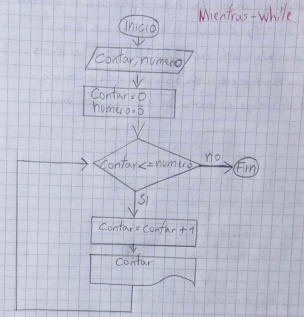 Mientras-while
INICIO
Contar, numero
Contar=0
numero=5
Contar<=numero
no
Fin
SI
Contar=Contar+1
Contar